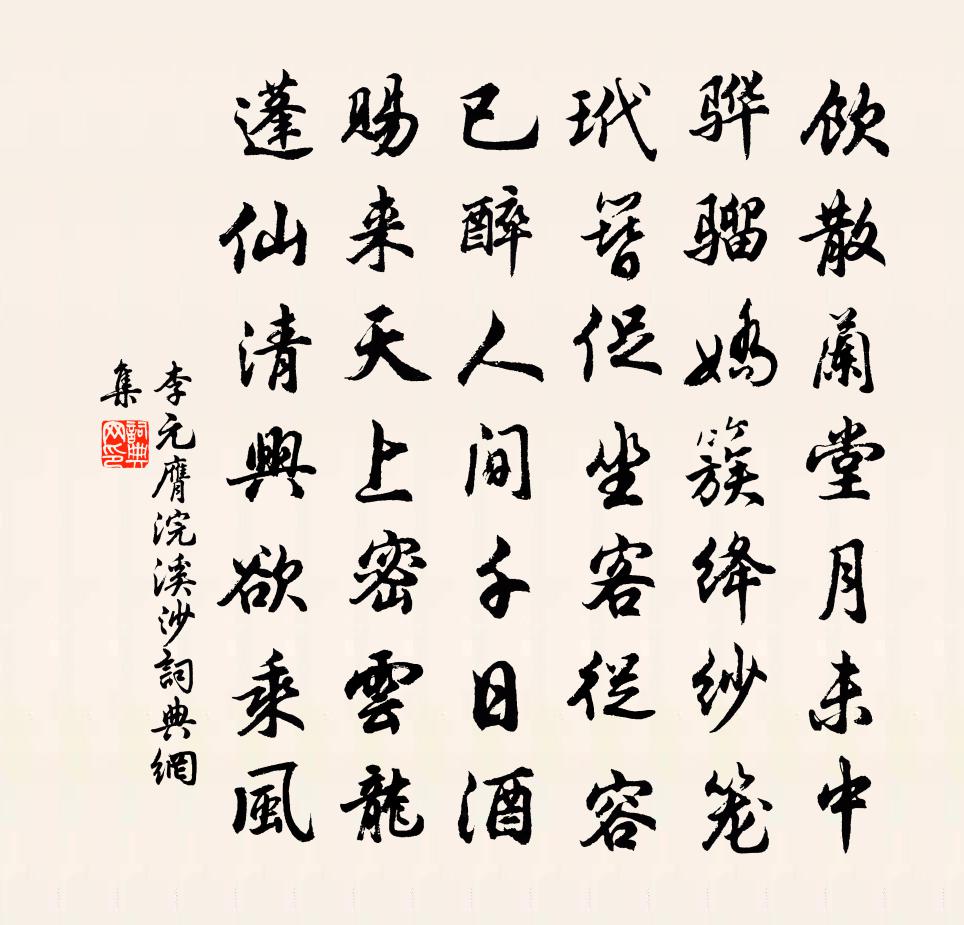 飲散蘭堂月未中
骅骝嬌簇绛纱笼
玳簪促坐客從容
已醉人间千日酒
赐来天上密雲龍
蓬仙清興欲乘風
李元膺浣溪沙詞典網
集
詞典
网印